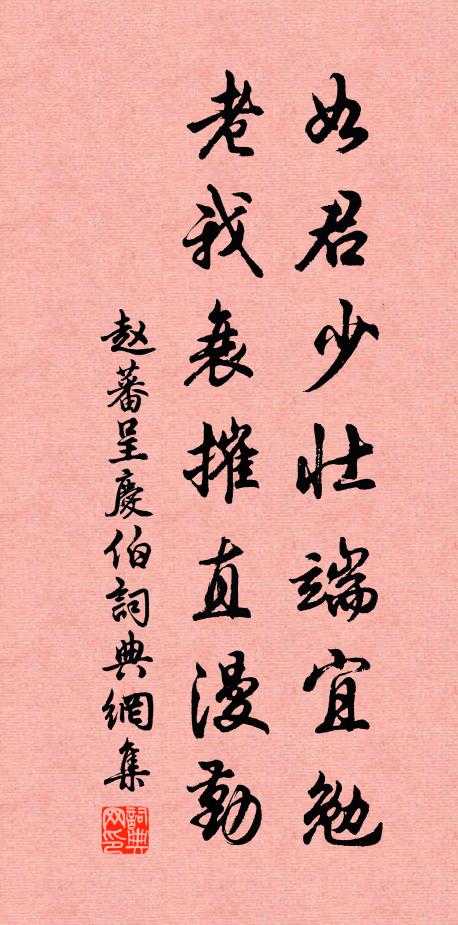 如君少壯端宜勉
老我衰摧直漫勤
赵蕃呈慶伯詞典網集
詞典网印